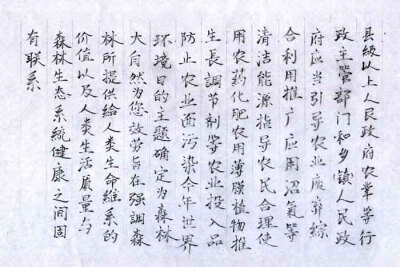 县级以上人民政府农牧等行
政主管部门和乡(镇)人民政
府应当引导农业废弃综
合利用推广应用沼氣等
清洁能源指导农民合理使
用农药化肥农用薄膜植物推
生長調節剂等农业投入品
防止农业面污染今年世界
环境日的主题确定为森林
大自然为您效劳旨在强調森
林所提供给人类生命維系的
价值以及人类生活质量与
森林生态系統健康之间固
有联系